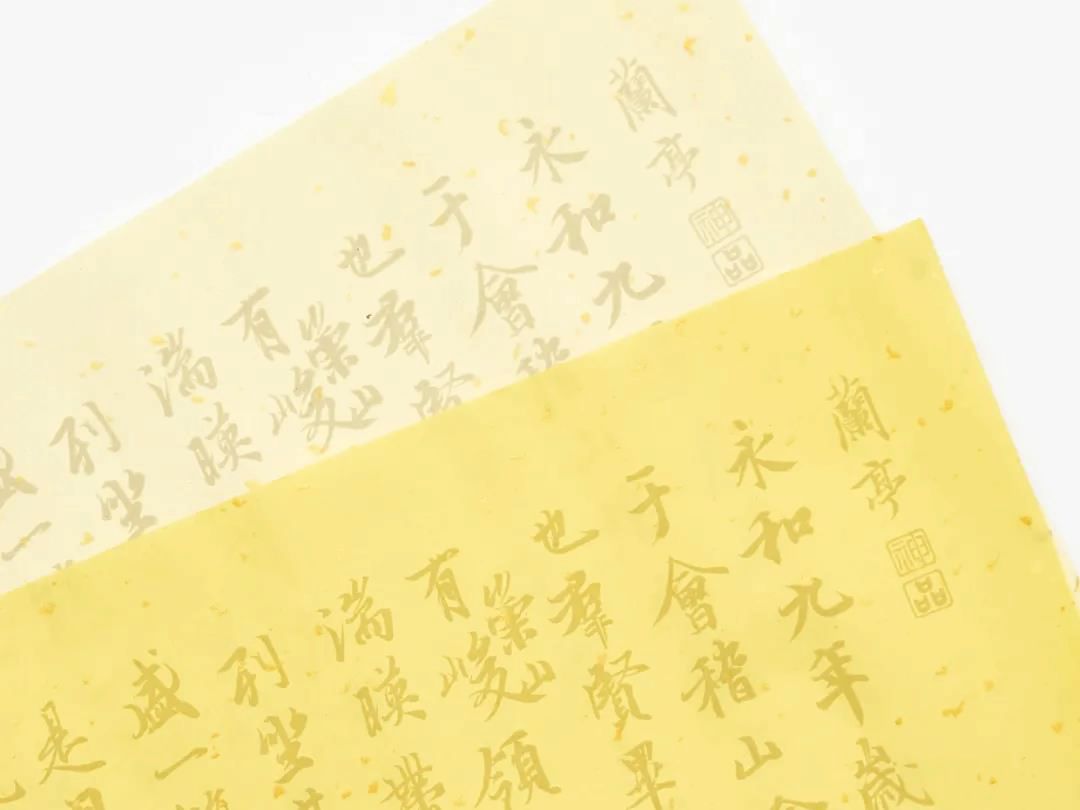 蘭亭
神品
永和九
于會
也羣賢
有崇山峻
湍暎
列坐
一
蘭亭
神品
永和九年歲
于會稽山
也羣賢畢
有崇山峻領
湍暎帶
列坐
盛一
是